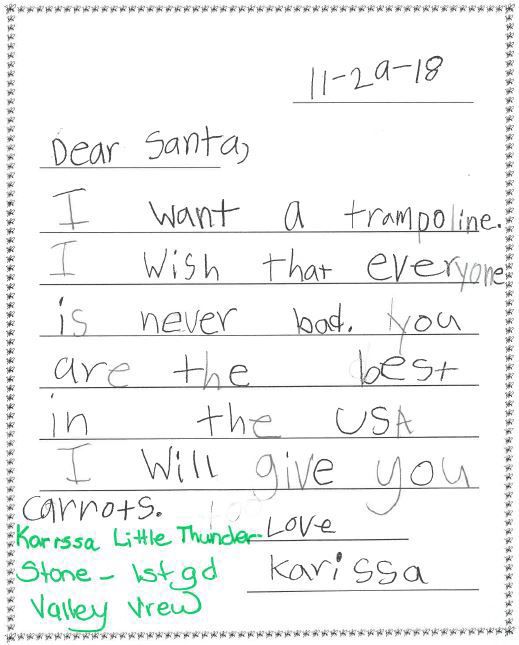 11-29-18
Dear Santa,
I want a trampoline.
I wish that everyone
is never bad. you
are the best
in the USA
I Will give you
carrots.
Love
Karissa
Karissa Little Thunder-
Stone - 1st gd
Valley View